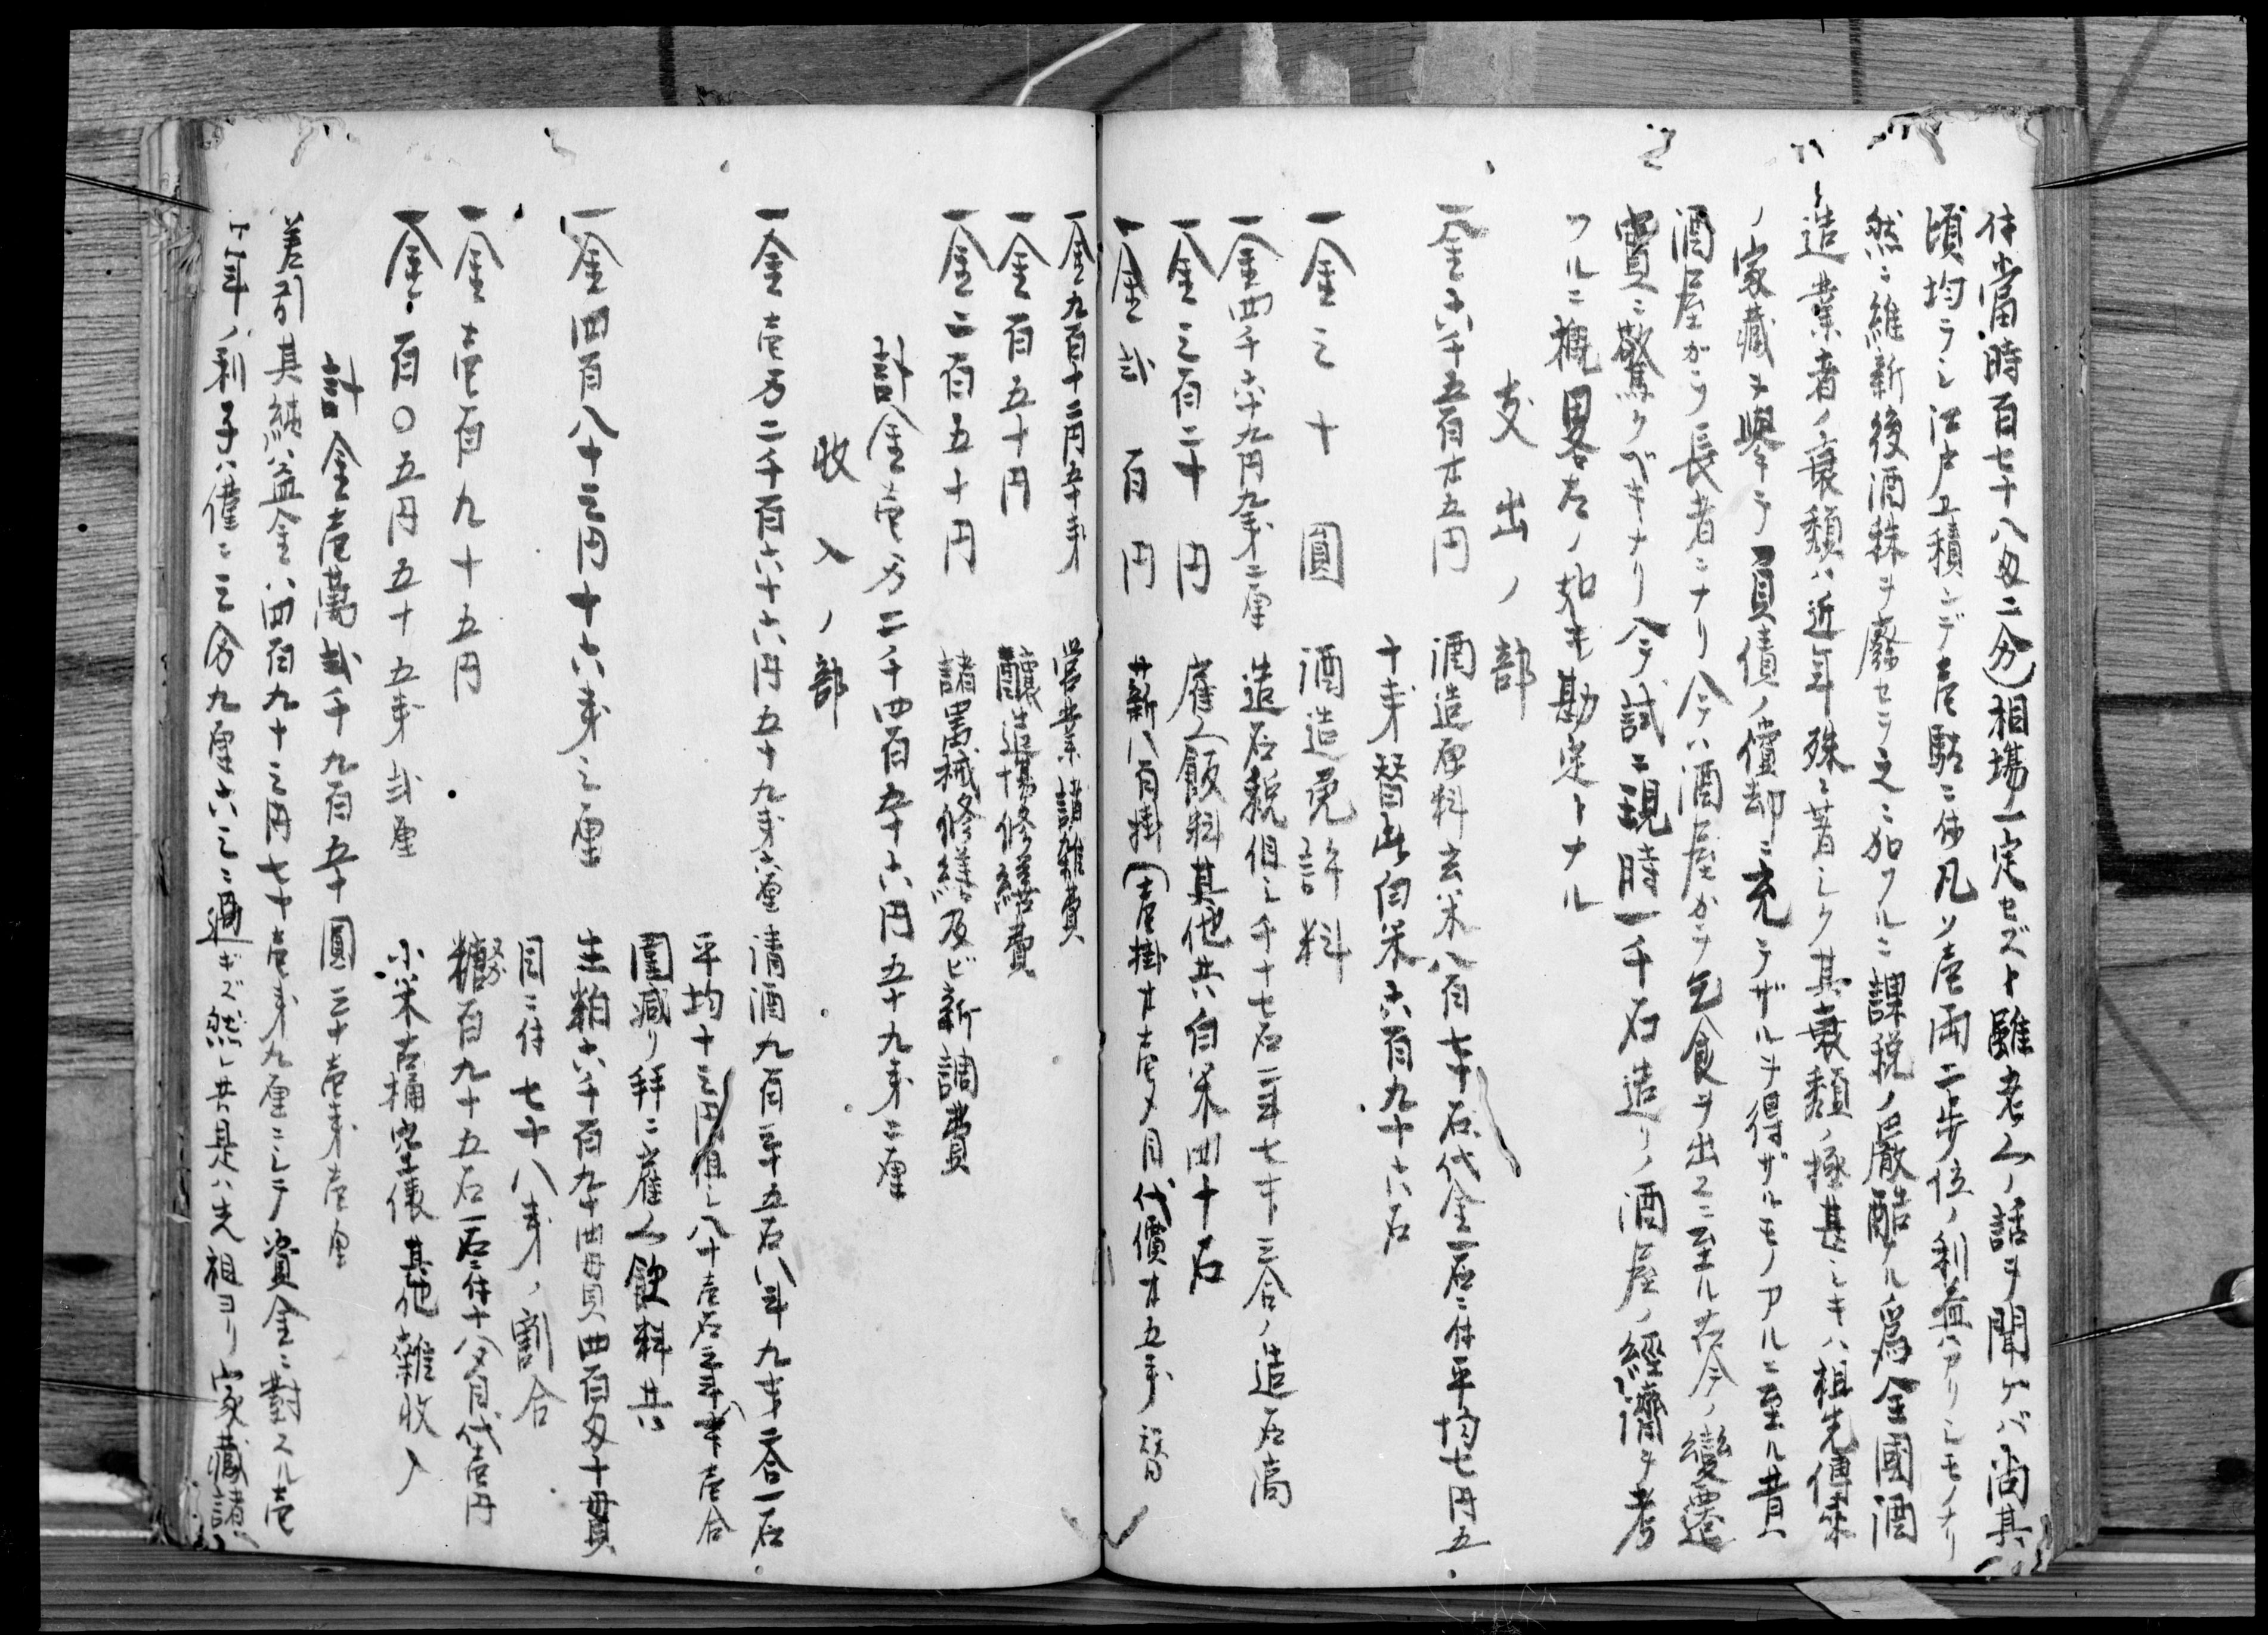 付當時百七十八匁二分)相場一定セズト雖老人ノ話ヲ聞ケバ尚其
頃均ラシ江戸エ積ンデ壱駄ニ付凡ソ壱両二歩位ノ利益ハアリシモノナリ
然ニ維新後酒株ヲ廢セラレ之ニ加フルニ課税ノ嚴酷ナル為全國酒
造業者ノ衰頽ハ近年殊ニ著シク其衰頽ノ極甚シキハ祖先傳来
ノ家藏ヲ擧テ負債ノ償却ニ充テザルヲ得ザルモノアルニ至ル昔ハ
酒屋がラ長者ニナリ今ハ酒屋がラ乞食ヲ出スニ至ル古今ノ變遷
實ニ驚クベキナリ今試ニ現時一千石造リノ酒屋ノ經濟ヲ考
フルニ概畧左ノ如キ勘定トナル
支出ノ部
一金六千五百廿五円 酒造原料玄米八百七十石代金一石ニ付平均七円五
十銭替此白米六百九十六石
一金三十圓 酒造免許料
一金四千六十九円九十銭二厘 造石税但シ千十七石二斗七升三合ノ造石高
一金三百二十円 雇人飯料其他共白米四十石
一金弐百円 薪八百掛(壱掛廿壱〆目代價廿五銭替
一金九百十二円五十銭 営業諸雑費
一金百五十円 釀造場修繕費
一金二百五十円 諸器械修繕及ビ新調費
計金壱万二千四百五十六円五十九銭二厘
收入ノ部
一金壱万二千百六十六円五十九銭六厘 清酒九百三十五石八斗九升二合一石
平均十三円但シ八十壱石三斗八升壱合
圍減リ并ニ雇人飲料共
一金四百八十三円十六銭三厘 生粕六千百九十四貫四百匁十貫
目ニ付七十八銭ノ割合
一金壱百九十五円 糠百九十五石一石ニ付十八〆目代壱円
一金百〇五円五十五銭弐厘 小米古桶空俵其他雑收入
計金壱萬弐千九百五十圓三十壱銭壱厘
差引其純益金ハ四百九十三円七十壱銭九厘ニシテ資金ニ對スル壱
ケ年ノ利子ハ僅ニ三分九厘六三ニ過ギズ然シ共是ハ先祖ヨリ家藏諸